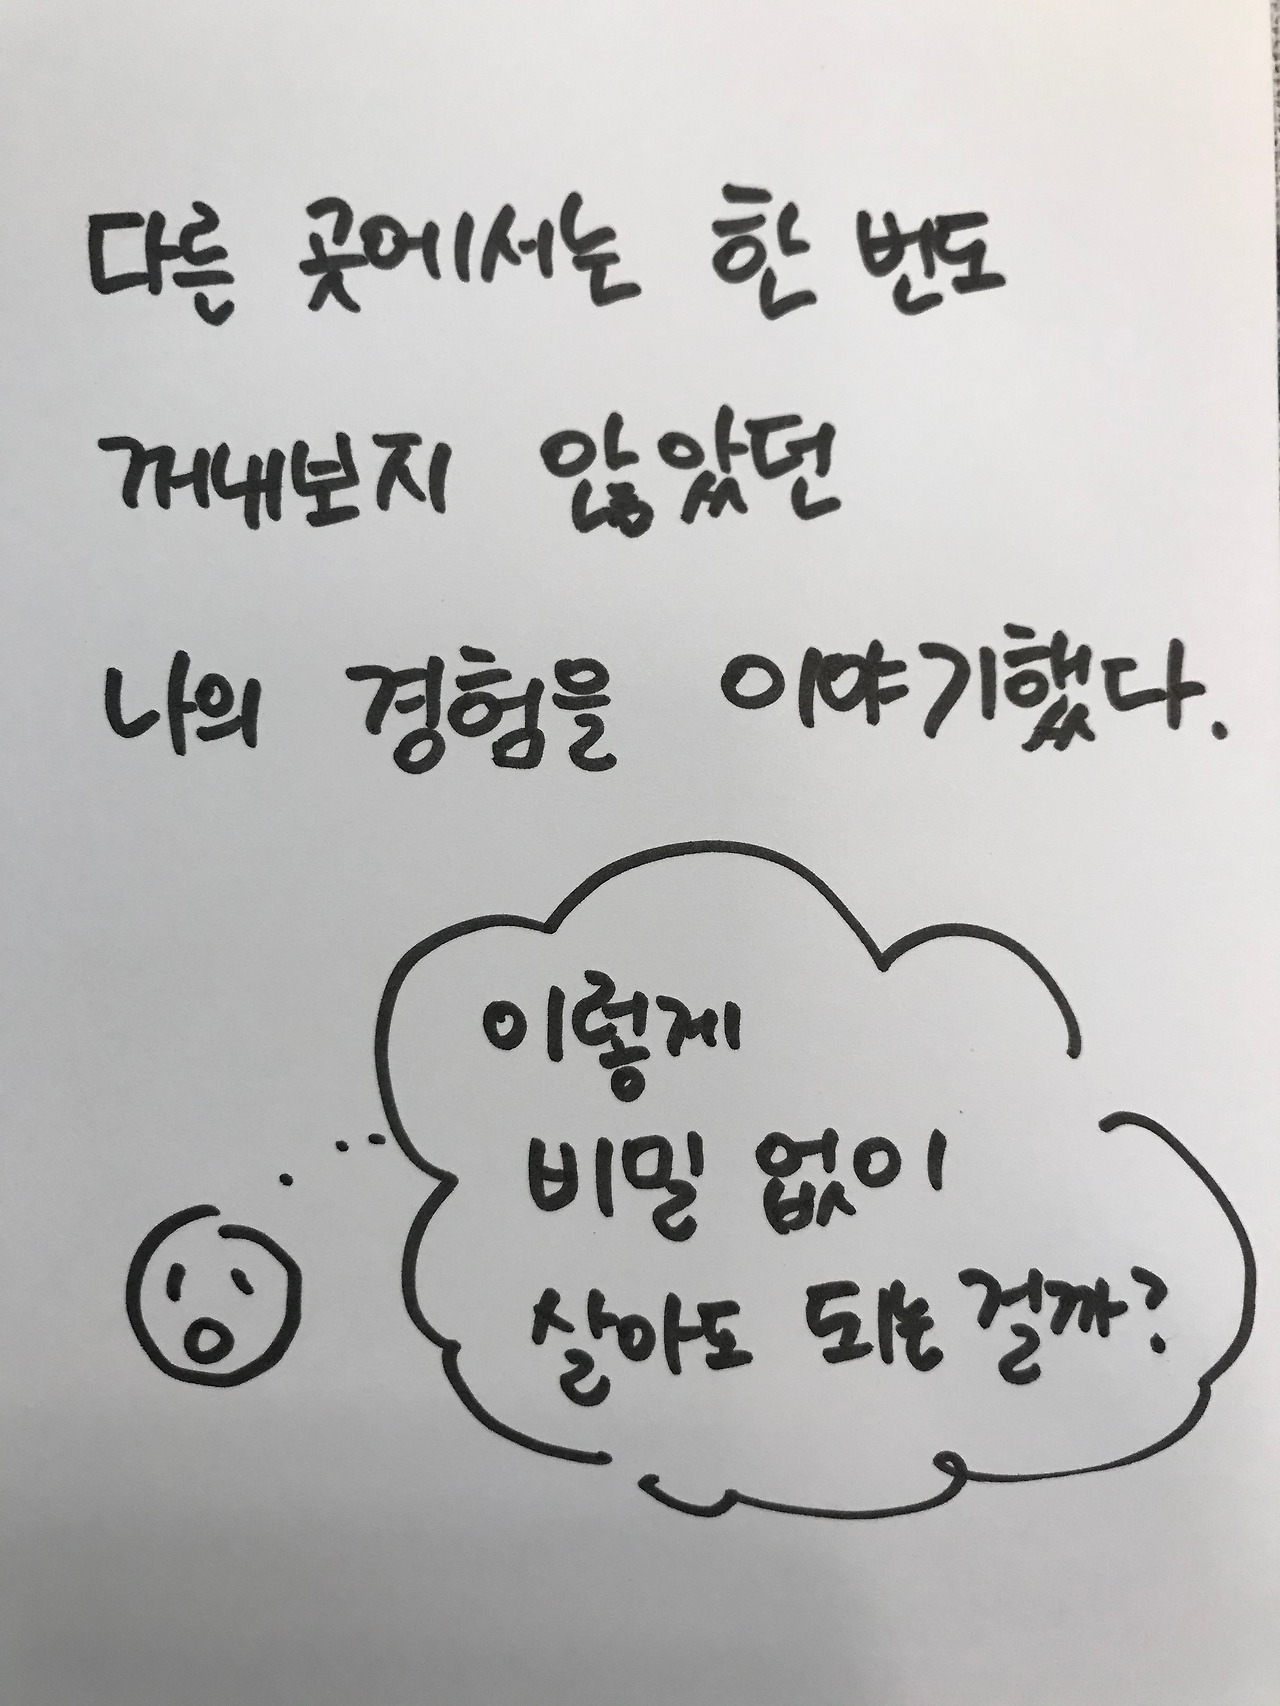 다른 곳에서는 한 번도
꺼내보지 않았던
나의 경험을 이야기했다.
이렇게
비밀 없이
살아도 되는 걸까?